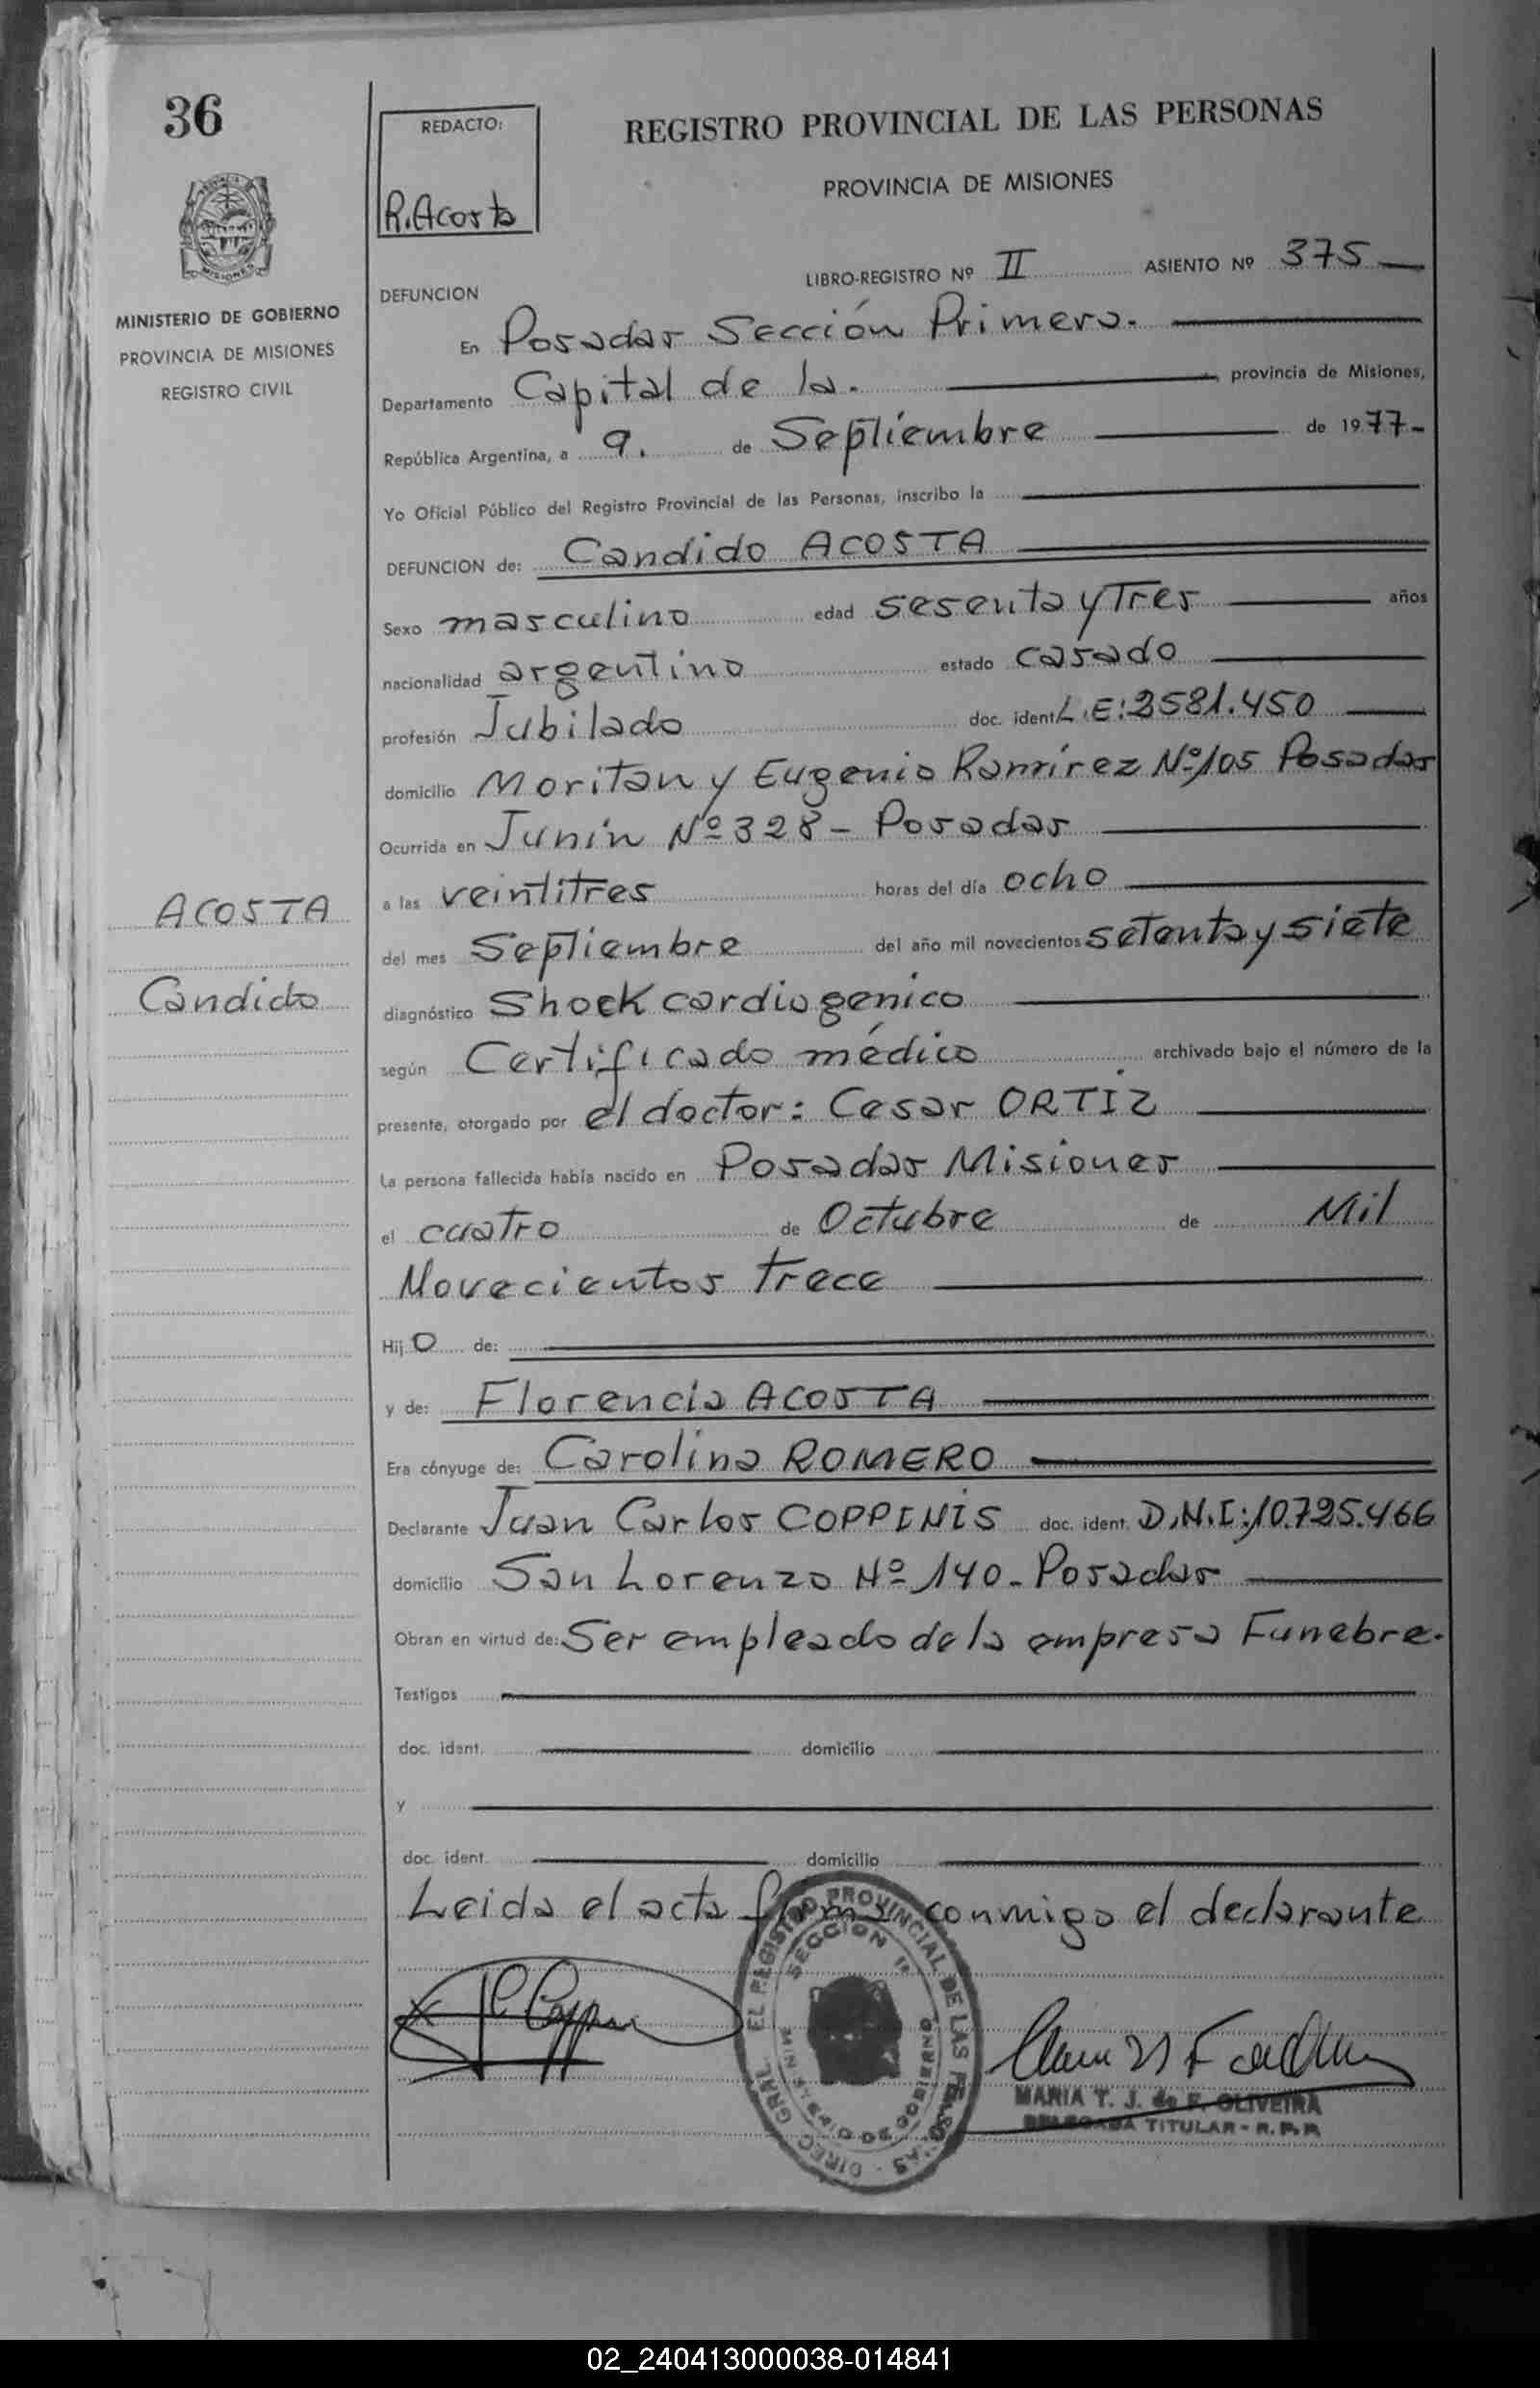 36
REDACTO:
R. Acosta
REGISTRO PROVINCIAL DE LAS PERSONAS
PROVINCIA DE MISIONES
MISIONES
MINISTERIO DE GOBIERNO
PROVINCIA DE MISIONES
REGISTRO CIVIL
LIBRO-REGISTRO Nº II ASIENTO Nº 375
DEFUNCION
En Posadas Sección Primera.
Departamento Capital de la. provincia de Misiones,
República Argentina, a 9. de Septiembre de 1977-
Yo Oficial Público del Registro Provincial de las Personas, inscribo la
DEFUNCION de: Candido ACOSTA
Sexo masculino edad sesenta y Tres años
nacionalidad argentino estado casado
profesión Jubilado doc. ident L.E: 2581.450
domicilio Moritan y Eugenio Ramírez Nº 105 Posadas
Ocurrida en Junín Nº 328 - Posadas
a las veintitres horas del día ocho
del mes Septiembre del año mil novecientos setenta y siete
ACOSTA
Candido
diagnóstico Shock cardiogenico
según Certificado médico archivado bajo el número de la
presente, otorgado por el doctor: Cesar ORTIZ
La persona fallecida había nacido en Posadas Misiones
el cuatro de Octubre de Mil
Novecientos trece
Hijo de:
y de: Florencia ACOSTA
Era cónyuge de: Carolina ROMERO
Declarante Juan Carlos COPPINIS doc. ident. D.N.I: 10.725.466
domicilio San Lorenzo Nº 140 - Posadas
Obran en virtud de: Ser empleado de la empresa Funebre.
Testigos
doc. ident. domicilio
y
doc. ident. domicilio
Leida el acta firma conmigo el declarante
DIREC. GRAL. EL REGISTRO PROVINCIAL DE LAS PERSONAS
SECCION 1ª
MINISTERIO DE GOBIERNO
MARIA T. J. de F. OLIVEIRA
DELEGADA TITULAR - R. P. P.
02_240413000038-014841